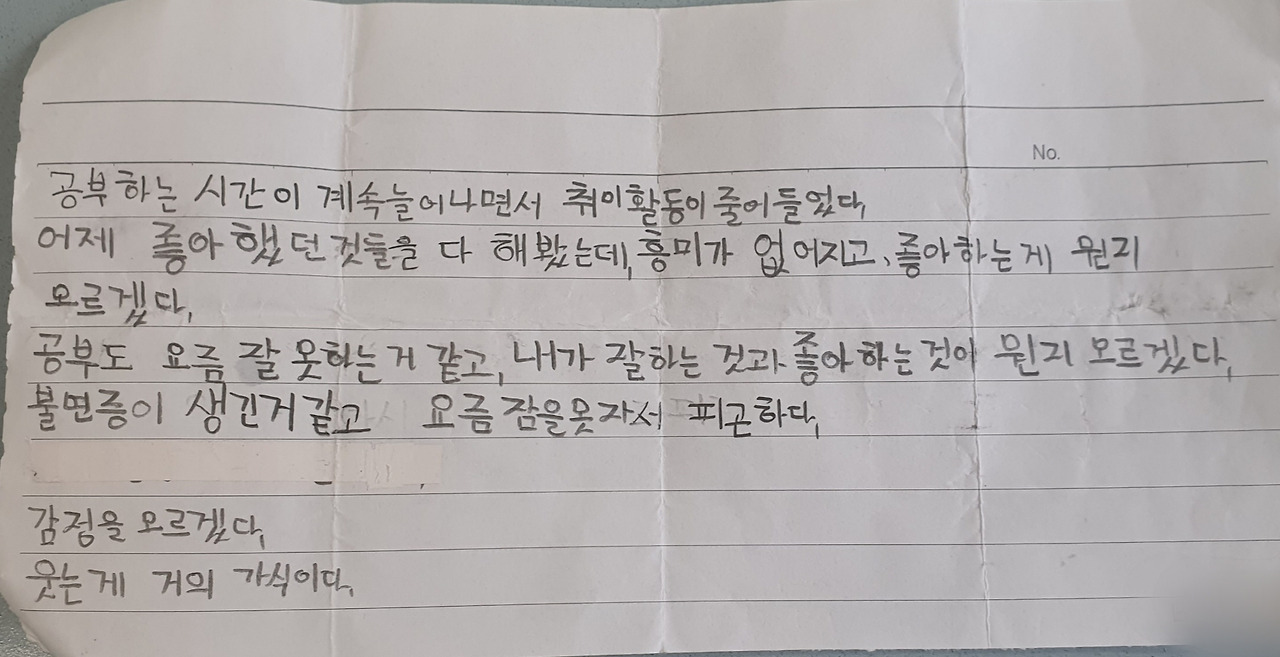 No.
공부하는 시간이 계속늘어나면서 취미활동이 줄어들었다.
어제 좋아했던 것들을 다 해봤는데, 흥미가 없어지고, 좋아하는게 뭔지
모르겠다.
공부도 요즘 잘 못하는거 같고, 내가 잘하는 것과 좋아하는것이 뭔지 모르겠다.
불면증이 생긴거같고 요즘 잠을못자서 피곤하다.
감정을 모르겠다.
웃는게 거의 가식이다.